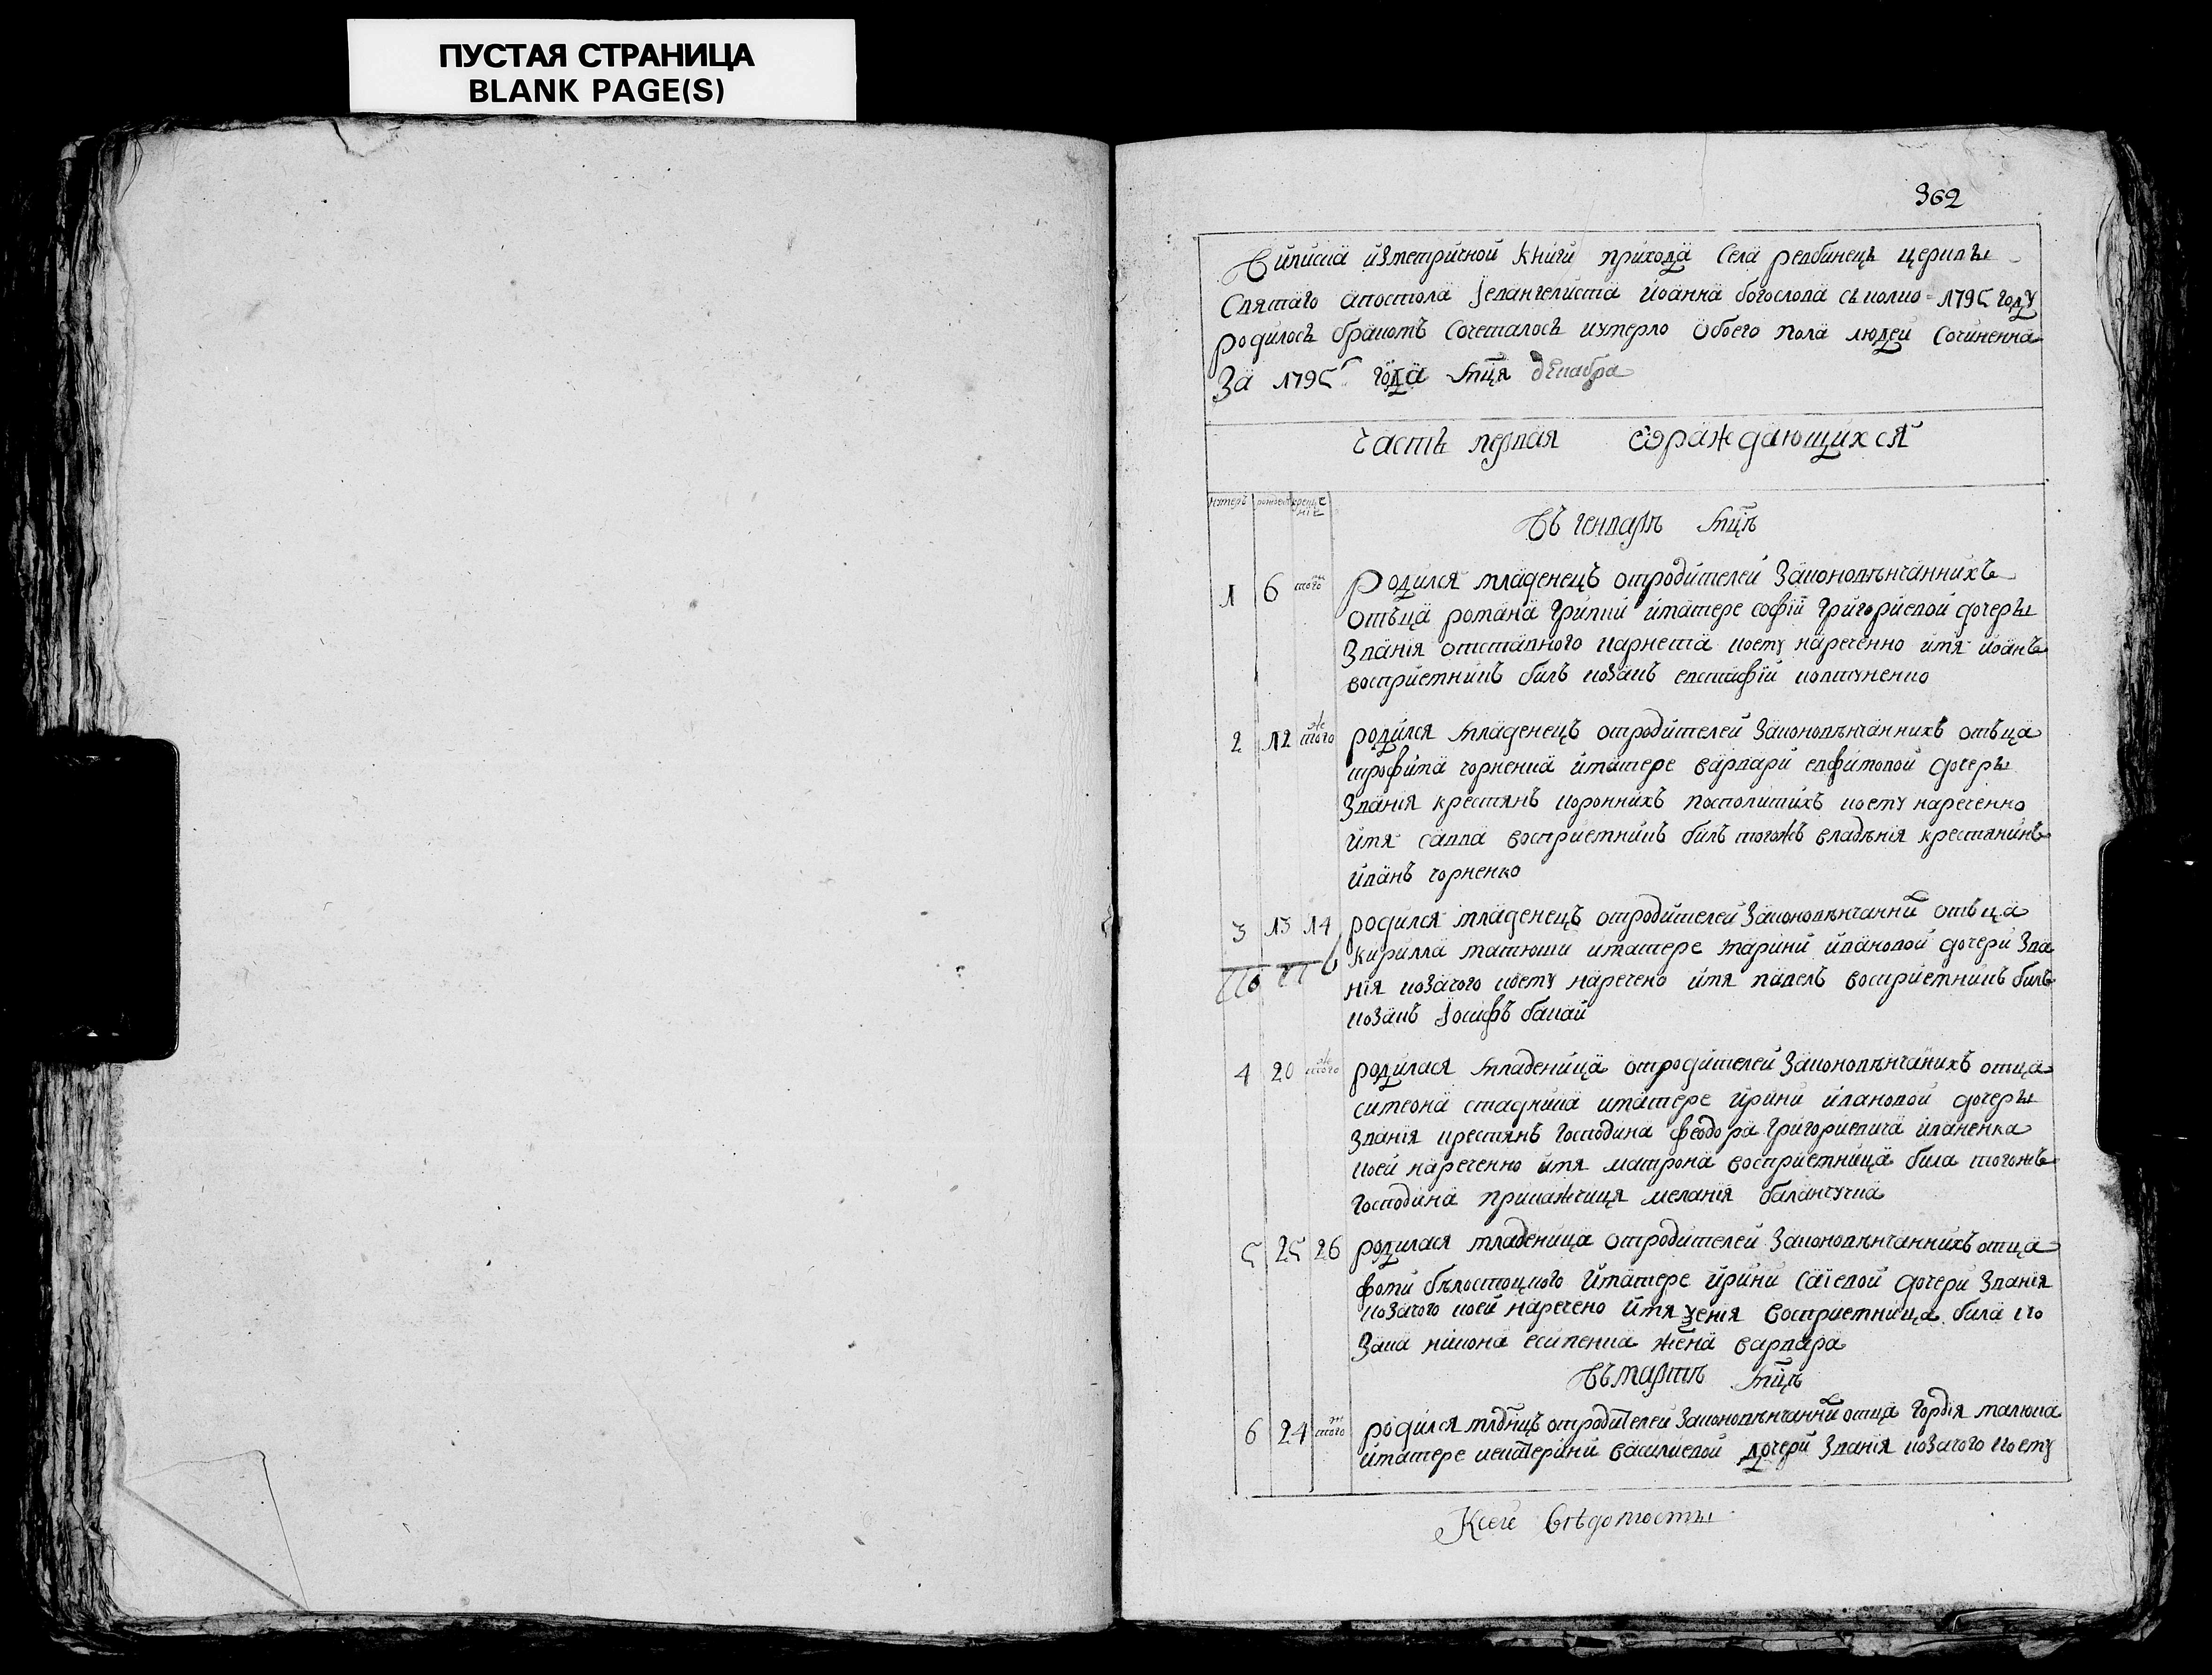 ПУСТАЯ СТРАНИЦА
BLANK PAGE(S)
362
Виписка изметричной книги прихода села ревбинецъ церквы
святаго апостола јевангелиста иоанна богослова сколко 1795 году
родилось бракомъ сочеталось иумерло обоего пола людей сочиненна
За 1795 года мця декабра
часть первая ѡраждающихся
нумеръ крещение
Въ генварѣ мцѣ
1 6 того ж родился младенецъ отродителей законовѣнчаннихъ
отъца романа иматере софїи григориевой дочеры
званія отставного карнета коему нареченно имя иоанъ
восприемникъ билъ козакъ евстафїй
2 12 того же родился младенецъ отродителей законовѣнчаннихъ отъца
трофима чорненка иматере варвари евфимовой дочеры
званія крестянъ короннихъ посполитихъ коему нареченно
имя савва восприемникъ билъ тогожъ владѣнія крестянинъ
иванъ чорненко
3 13 14 родился младенецъ отродителей законовѣнчанни отъца
кирилла матюши иматере марини ивановой дочери зва
нія козачого коему наречено имя павелъ восприемникъ билъ
козакъ јосифъ бакай
4 20 того же родилася младеница отродителей законовѣнчанихъ отца
симеона стадника иматере ирини ивановой дочеры
званія крестянъ господина феодора григориевича иваненка
коей нареченно имя матрона восприемница била тогожъ
господина прикажчиця меланія
5 25 26 родилася младеница отродителей законовѣнчаннихъ отца
фоми бѣлостоцкого иматере ирини савевой дочери званія
козачого коей наречено имя ѯенія восприемница била ко
зака никона есипенка жена варвара
Въ мартѣ мцѣ
6 24 того ж родился млднцъ отродителей законовѣнчанни отца гордія малюка
иматере катерини василиевой дочери званія козачого коему
Ксей вѣдомосты